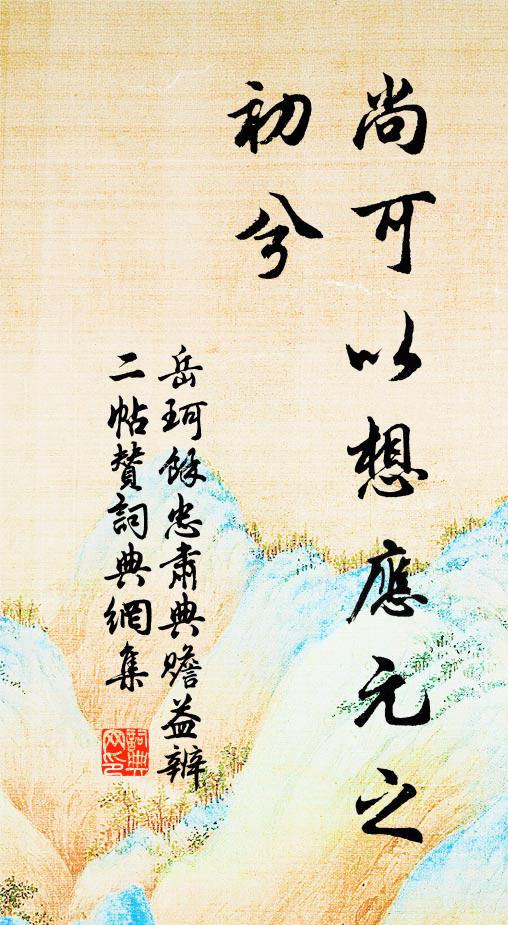 尚可以想應元之
初兮
岳珂餘忠肅典贍益辨
二帖贊詞典網集
詞典網印